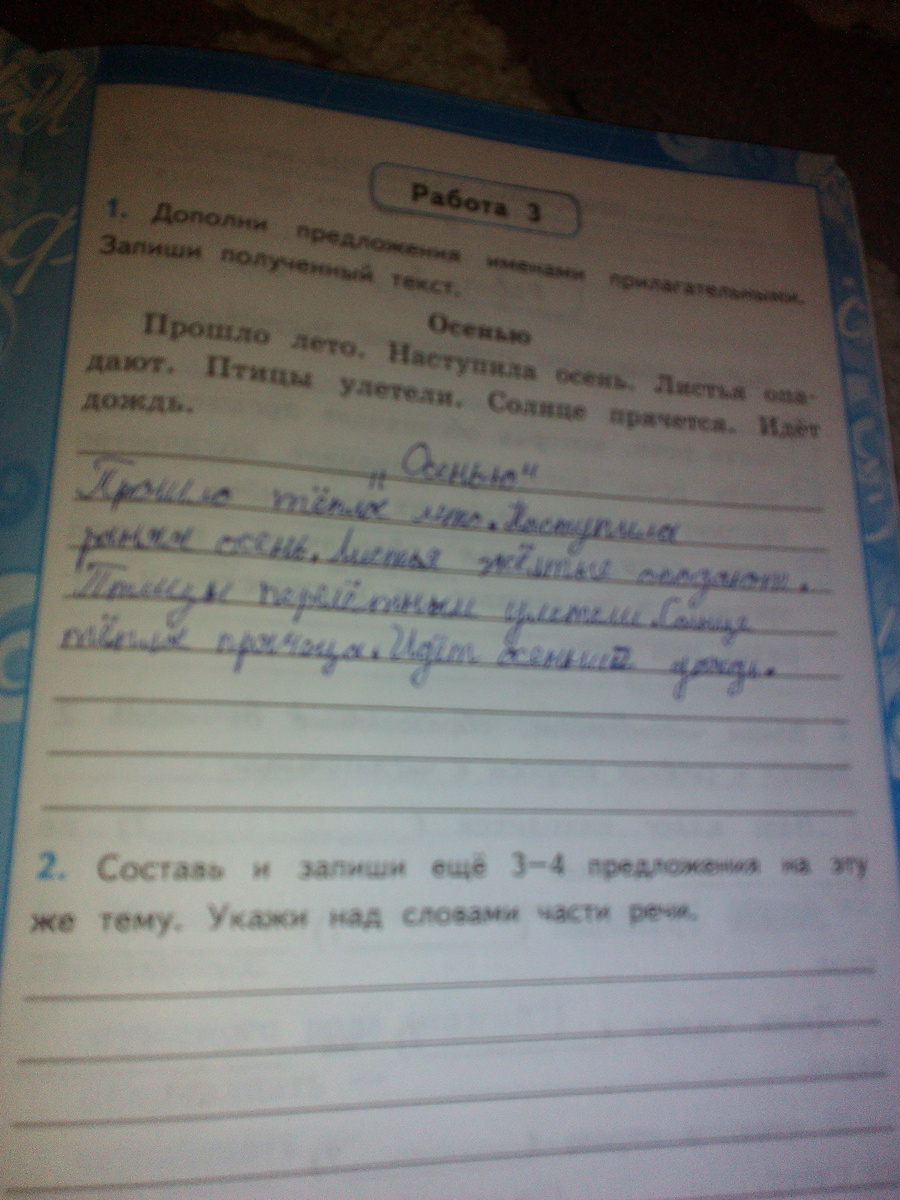 Работа 3
1. Дополни предложения именами прилагательными.
Запиши полученный текст.
Осенью
Прошло лето. Наступила осень. Листья опа-
дают. Птицы улетели. Солнце прячется. Идёт
дождь.
„Осенью“
Прошло тёпла лето. Наступила
ранняя осень. Листья жёлтые опадают.
Птицы перелётные улетели. Солнце
тёпла прячеца. Идёт осенний дождь.
2. Составь и запиши ещё 3–4 предложения на эту
же тему. Укажи над словами части речи.